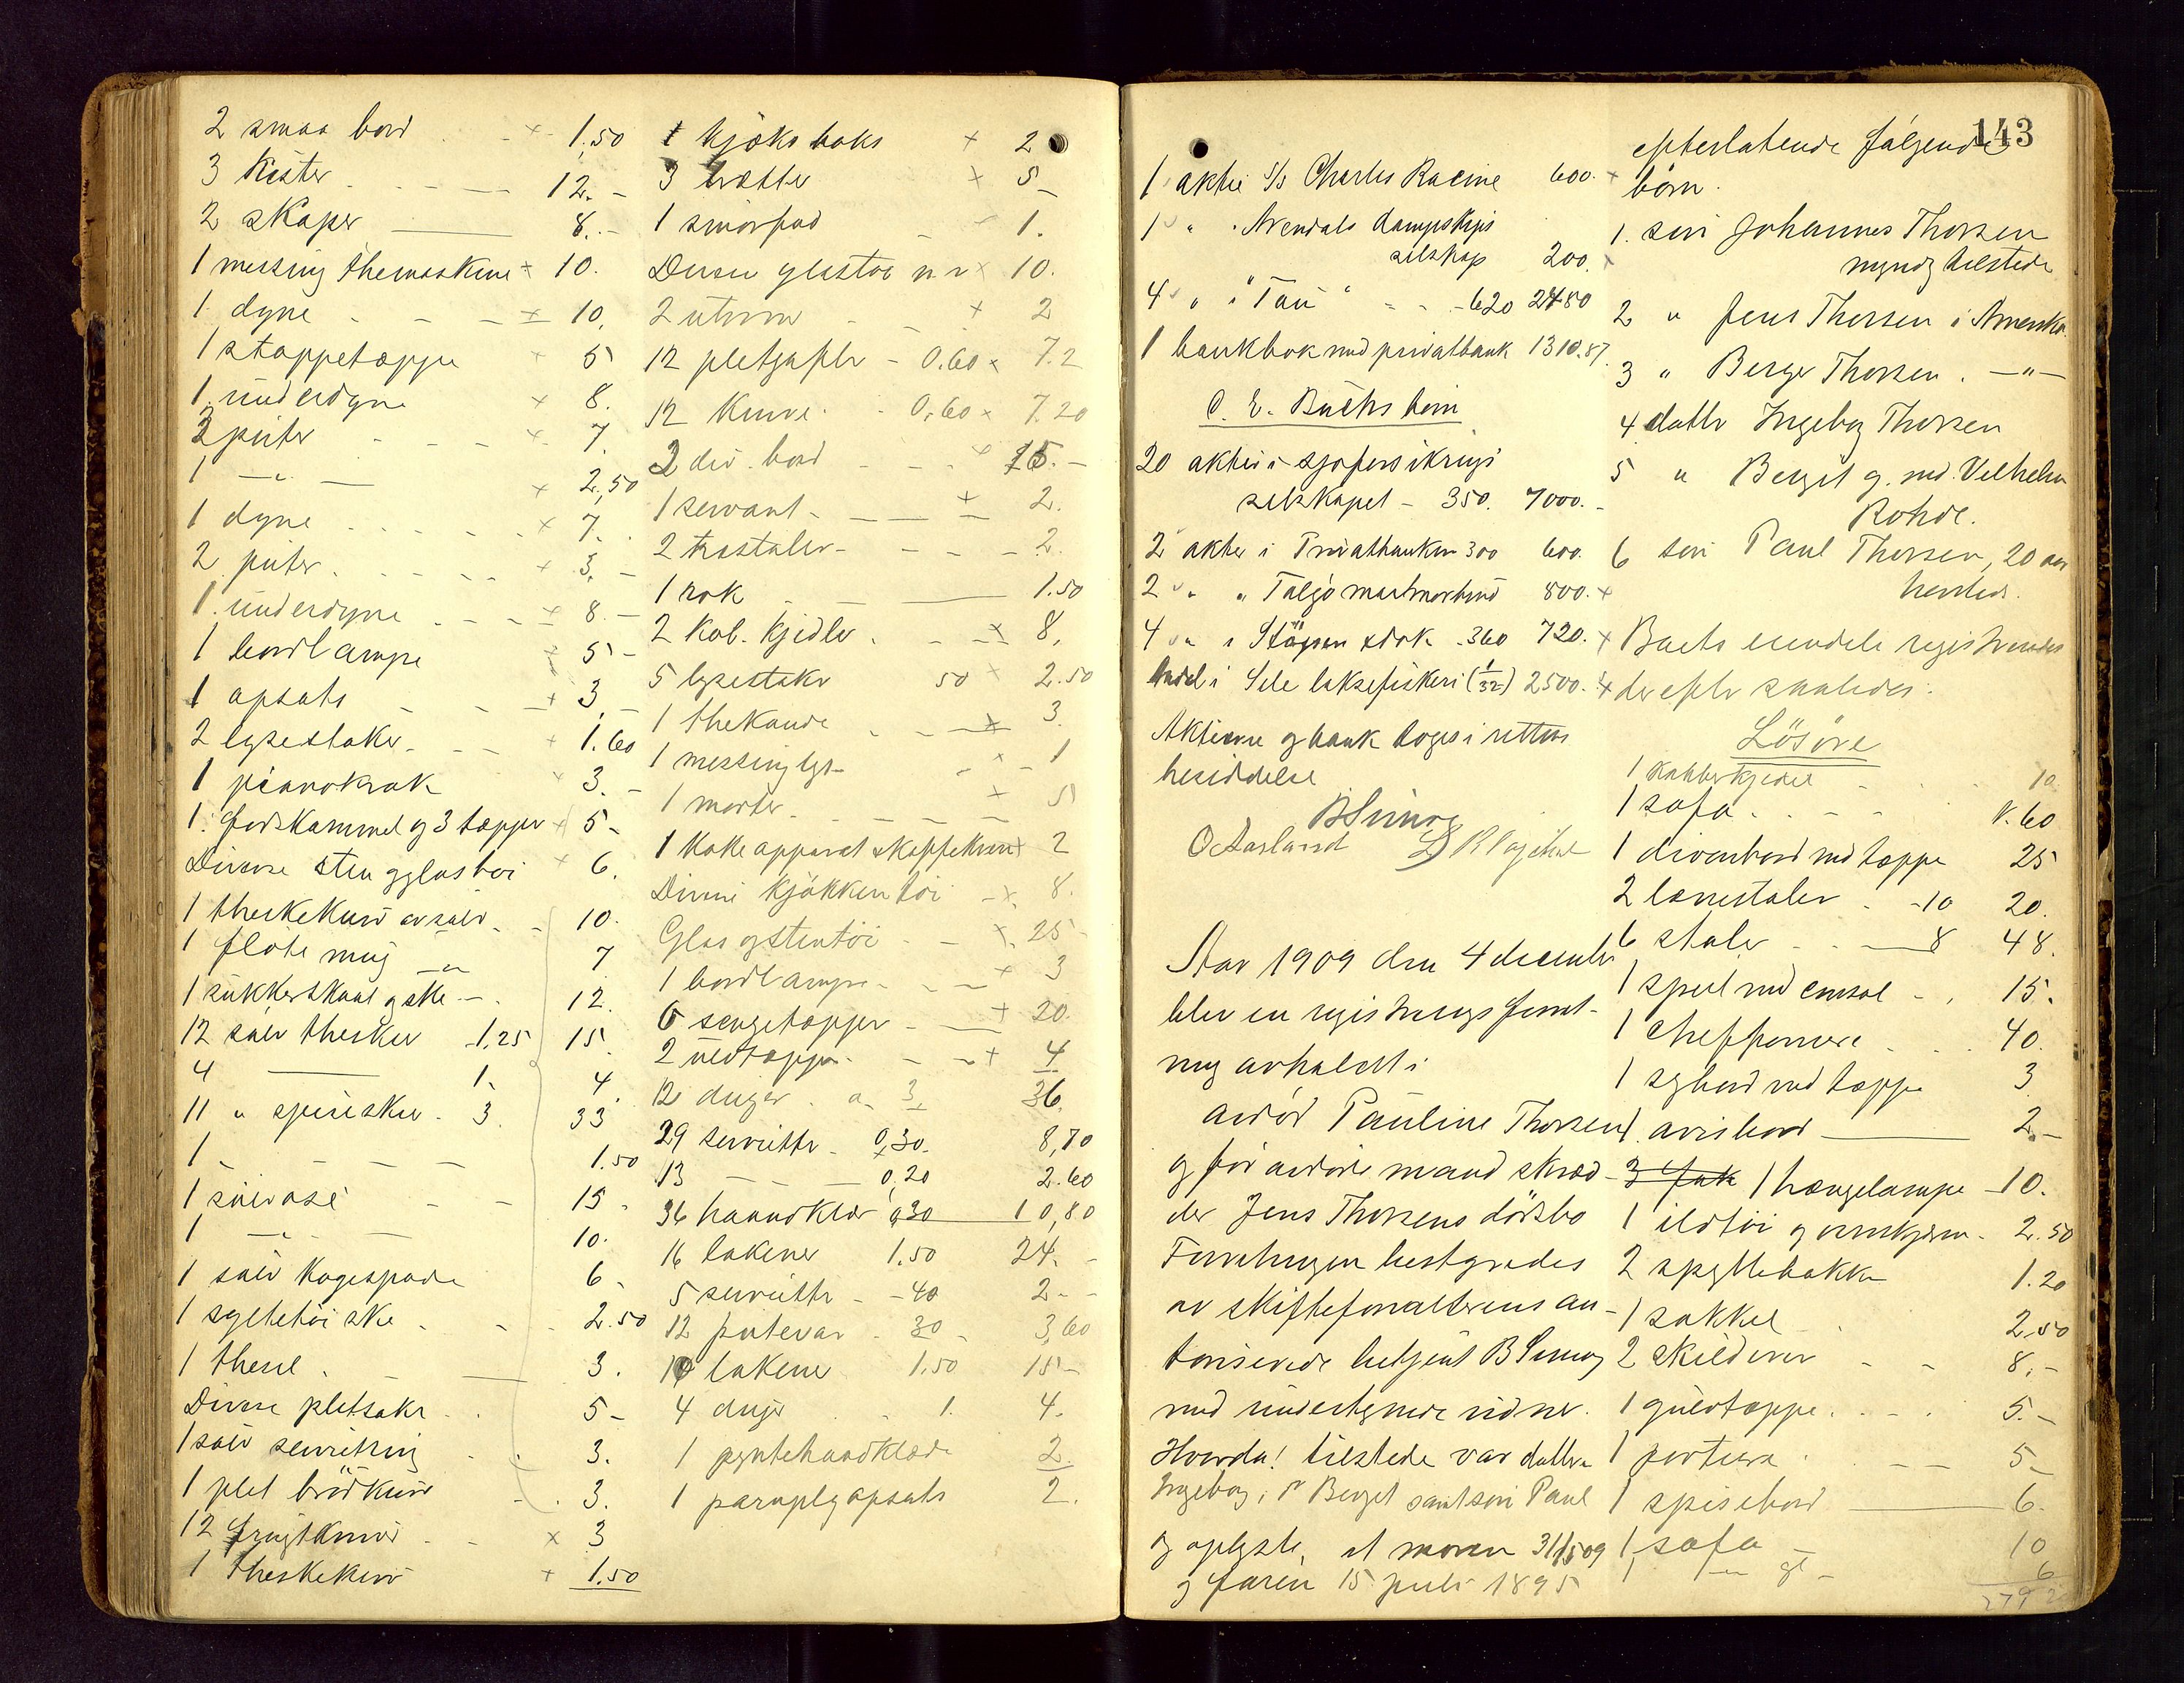 2 smaa bord × 1.50
3 Kister 12.-
2 skaper 8.-
1 messing themaskine × 10.
1 dyne × 10.
1 stoppetæppe × 5
1 underdyne × 8.
2 puter × 7.
1 -"- × 2,50
1 dyne × 7.
2 puter × 3.-
1 underdyne × 8.-
1 bordlampe × 5-
1 opsats × 3.
2 lysestaker × 1.60
1 pianokrak × 3.-
1 fodskammel og 3 tæpper × 5-
Diverse sten og glastøi × 6.
1 theskekurv av sølv 10.
1 fløtemug -"- 7
1 sukkerskaal og ske 12.
12 sølv theskeer 1.25 15.
4 1. 4.
11 " spiseskeer 3. 33
1 - 1.50
1 sølvvase 15.
1 -"- 10.
1 sølv kagespade 6.
1 syltetøiske 2.50
1 thesil 3.
Diverse pletsaker 5-
1 sølv serviettring 3.
1 plet brødkurv 3.
12 frugtkniver × 3
1 theskekurv × 1.50
1 kjøks boks × 2
3 bretter × 5-
1 smørfad 1.
Diverse glastøi × 10.
2 × 2
12 pletgafler 0.60 × 7.2
12 Knive 0.60 × 7.20
2 div. bord × 15.-
1 servant × 2.
2 træstoler 2.
1 rok 1.50
2 Kob. Kjedler × 8.
5 lysestaker 50 × 2.50
1 thekande × 3.
1 messing × 1
1 morter × 5
1 Kokeapparat × 2
Diverse Kjøkkentøi × 8.
Glas og stentøi × 25-
1 bordlampe × 3
6 sengetæpper × 20.
2 uldtæpper × 4
12 duger a 3 36.
29 servietter 0,30. 8,70
13 0,20 2.60
36 haandklær 0,30 10,80
16 lakener 1.50 24.-
5 servietter -40 2.-
12 putevar 30 3,60
10 lakener 1.50 15-
4 duger 1. 4.
1 pyntehaandklæde 2.
1 paraplyopsats 2.
143
1 aktie S/S Charles Racine 600. ×
1 " " Arendals dampskips
selskap 200. ×
4 " i "Tau" 620 2480
1 bankbok med privatbank 1310.87.
20 aktier i sjøforsikrings
selskapet - 350. 7000.-
2 aktier i Privatbanken 300 600.
2 " " 800. ×
4 " i dok 360 720. ×
Andel i Sele laksefiskeri (1/32) 2500. ×
Aktierne og bank toges i rettens
besiddelse
Aar 1909 den 4 december
blev en registreringsforret-
ning avholdt i
avdød Pauline Thorsen
og før avdøde mand skræd-
der Jens Thorsens dødsbo
Forretningen bestyredes
av skifteforvalterens au-
toriserede betjent
med undertegnede vidner.
Hvorda! tilstede var døttrene
Ingeborg, Berget samt søn Paul
og oplyste, at moren 31/1509
og faren 15 juli 1895
efterlatende følgende
børn.
1. søn Johannes Thorsen
myndig tilstede
2 " Jens Thorsen i Amerika
3 " Berger Thorsen. -"-
4 datter Ingeborg Thorsen
5 " Berget g. med Vilhelm
Rohde.
6 søn Paul Thorsen, 20 aar
tilstede.
Boets eiendele registreredes
derefter saaledes:
Løsøre
1 kobberkjedel 10
1 sofa 60
1 divanbord med tæppe 25
2 lænestoler -10 20.
6 stoler 8 48.
1 speil med consol 15.
1 cheffoniere 40.
1 sybord med tæppe 3
1 avisbord 2.-
1 hængelampe -10.
1 ildtøi og ovnskjerm 2.50
2 spyttebakker 1.20
1 sokkel 2,50
2 skilderier 8.-
1 gulvtæppe 5.-
1 portiere 5-
1 spisebord 6.
1 sofa 10
1 -"- gl - 6